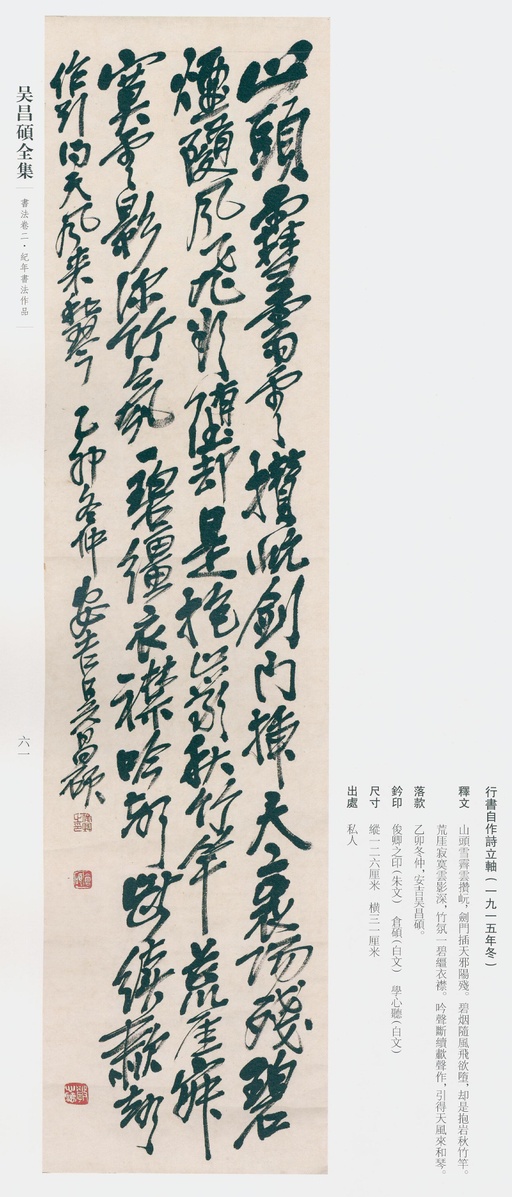 行書自作詩立軸(一九一五年冬)
釋文 山頭雪霽雲攢岏，劍門插天邪陽殘。碧烟隨風飛欲墮，却是抱岩秋竹竿。
荒厓寂寞雲影深，竹氛一碧繮衣襟。吟聲斷續歗聲作，引得天風來和琴。
落款 乙卯冬仲，安吉吴昌碩。
鈐印 俊卿之印(朱文) 倉碩(白文) 學心聽(白文)
尺寸 縱一二六厘米 橫三一厘米
出處 私人
山頭雪霽雲攢岏劍門插天衺陽殘碧
煙隨風飛欲墮却是抱岩秋竹竿荒厓寂
寞雲影深竹氛一碧繮衣襟吟聲斷續歗聲
作引得天風來和琴 乙卯冬仲 安吉吴昌碩
吴昌碩全集
書法卷二·紀年書法作品
六一